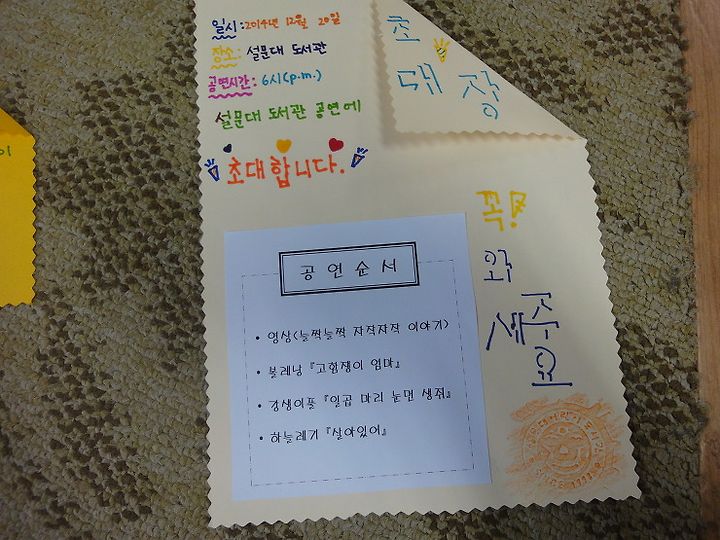 일시:2014년 12월 20일
장소: 설문대 도서관
공연시간: 6시(p.m.)
설문대 도서관 공연에
초대합니다.
초
대 장
꼭!
와
주
세
요
공연순서
• 영상(늘짝늘짝 자작자작 이야기)
• 볼레낭 『고함쟁이 엄마』
• 강생이풀 『일곱 마리 눈먼 생쥐』
• 하늘레기 『살아있어』
이